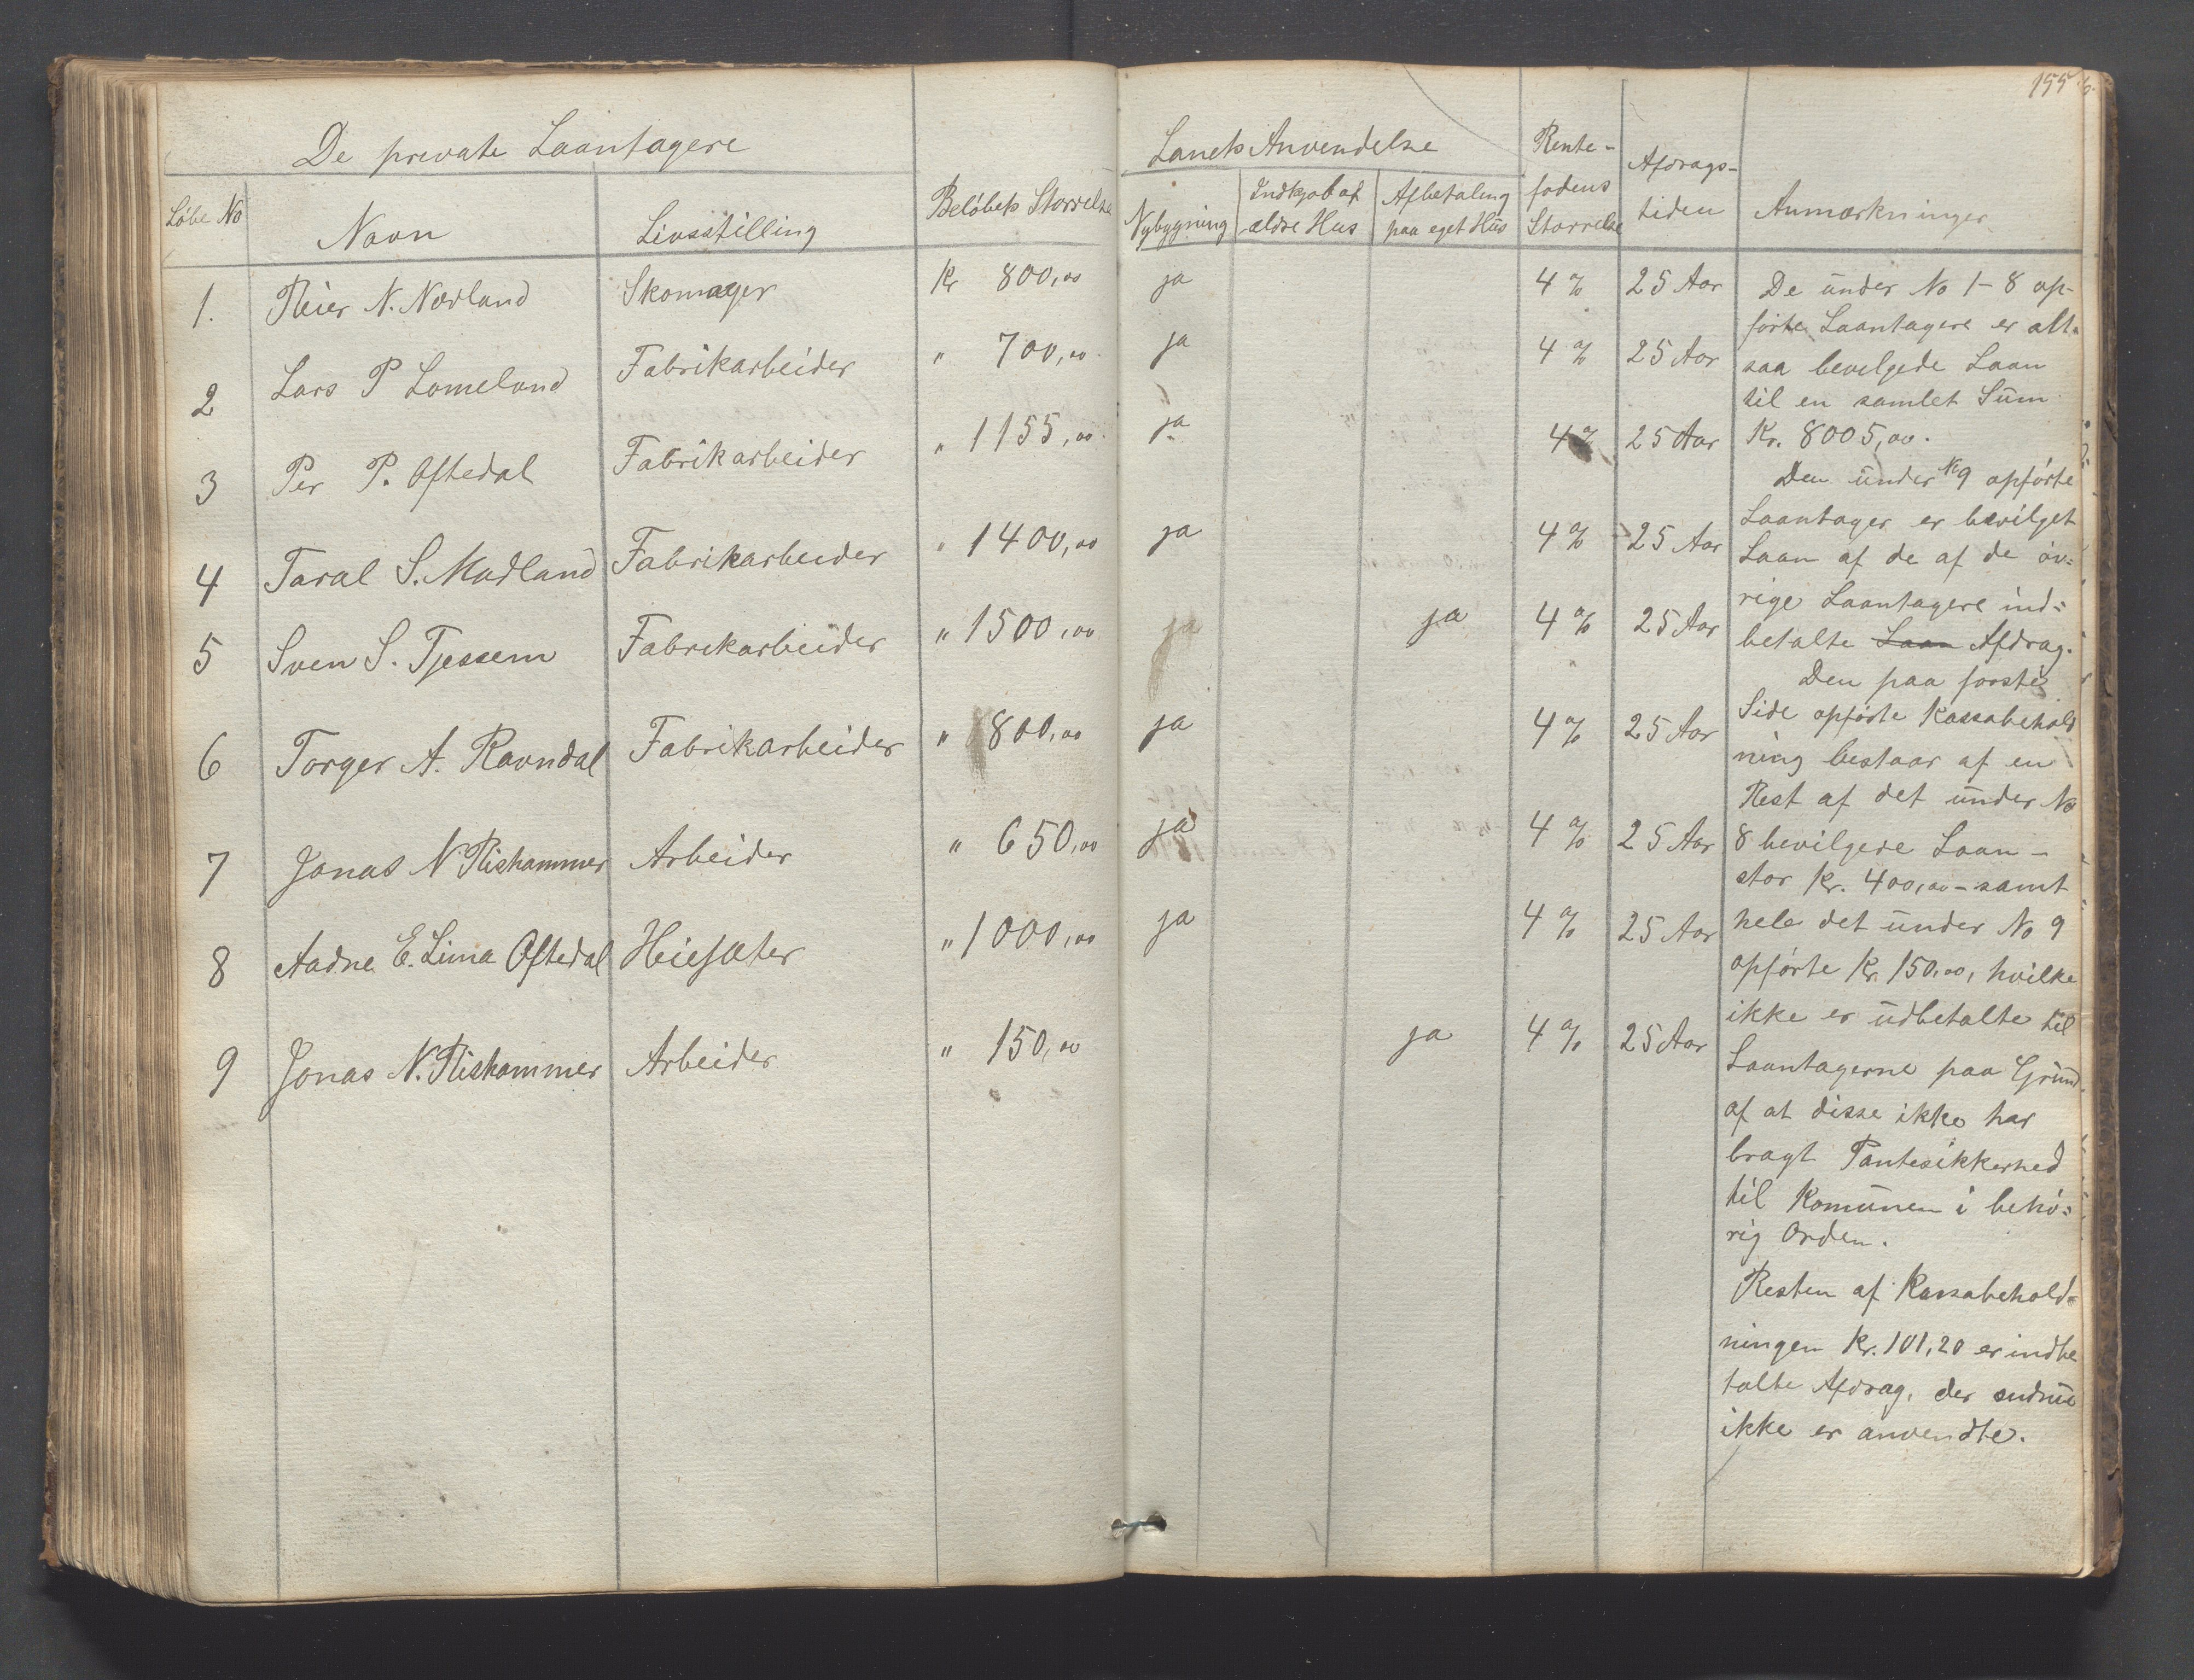 155
De private Laantagere
Lanets Anvendelse
Löbe No
Navn
Livsstilling
Beløbets Storrelse
Nybygning
Indkjøb af
ældre Hus
Afbetaling
paa eget Hus
Rente-
fodens
Storrelse
Afdrags-
tiden
Anmærkninger
1. Reier N. Nærland Skomager Kr 800,00 ja 4% 25 Aar
2 Lars P Lomeland Fabrikarbeider " 700,00 ja 4% 25 Aar
3 Per P. Oftedal Fabrikarbeider " 1155,00 ja 4% 25 Aar
4 Taral S. Madland Fabrikarbeider " 1400,00 ja 4% 25 Aar
5 Sven S. Tjessem Fabrikarbeider " 1500,00 ja 4% 25 Aar
6 Torger A. Ravndal Fabrikarbeider " 800,00 ja 4% 25 Aar
7 Jonas N Rishammer Arbeider " 650,00 ja 4% 25 Aar
8 Aadne E. Lima Oftedal " 1000,00 ja 4% 25 Aar
9 Jonas N. Rishammer Arbeider " 150,00 ja 4% 25 Aar
De under No 1-8 op-
førte Laantagere er alt-
saa bevelgede Laan
til en samlet Sum
Kr. 8005,00.
Den under No 9 opførte
Laantager er bevilget
Laan af de af de øv=
rige Laantagere ind=
betalte Laan Afdrag.
Den paa første
Side opførte Kassabehold
ning bestaar af en
Rest af det under No
8 bevilgede Laan -
stor Kr. 400,00 - samt
hele det under No 9
opførte Kr. 150,00, hvilke
ikke er udbetalte til
Laantagerne paa Grund
af at disse ikke har
bragt Pantesikkerhed
til Komunen i behø=
rig Orden.
Resten af Kassabehold=
ningen Kr. 101,20 er indbe
talte Afdrag, der endnu
ikke er anvendte.